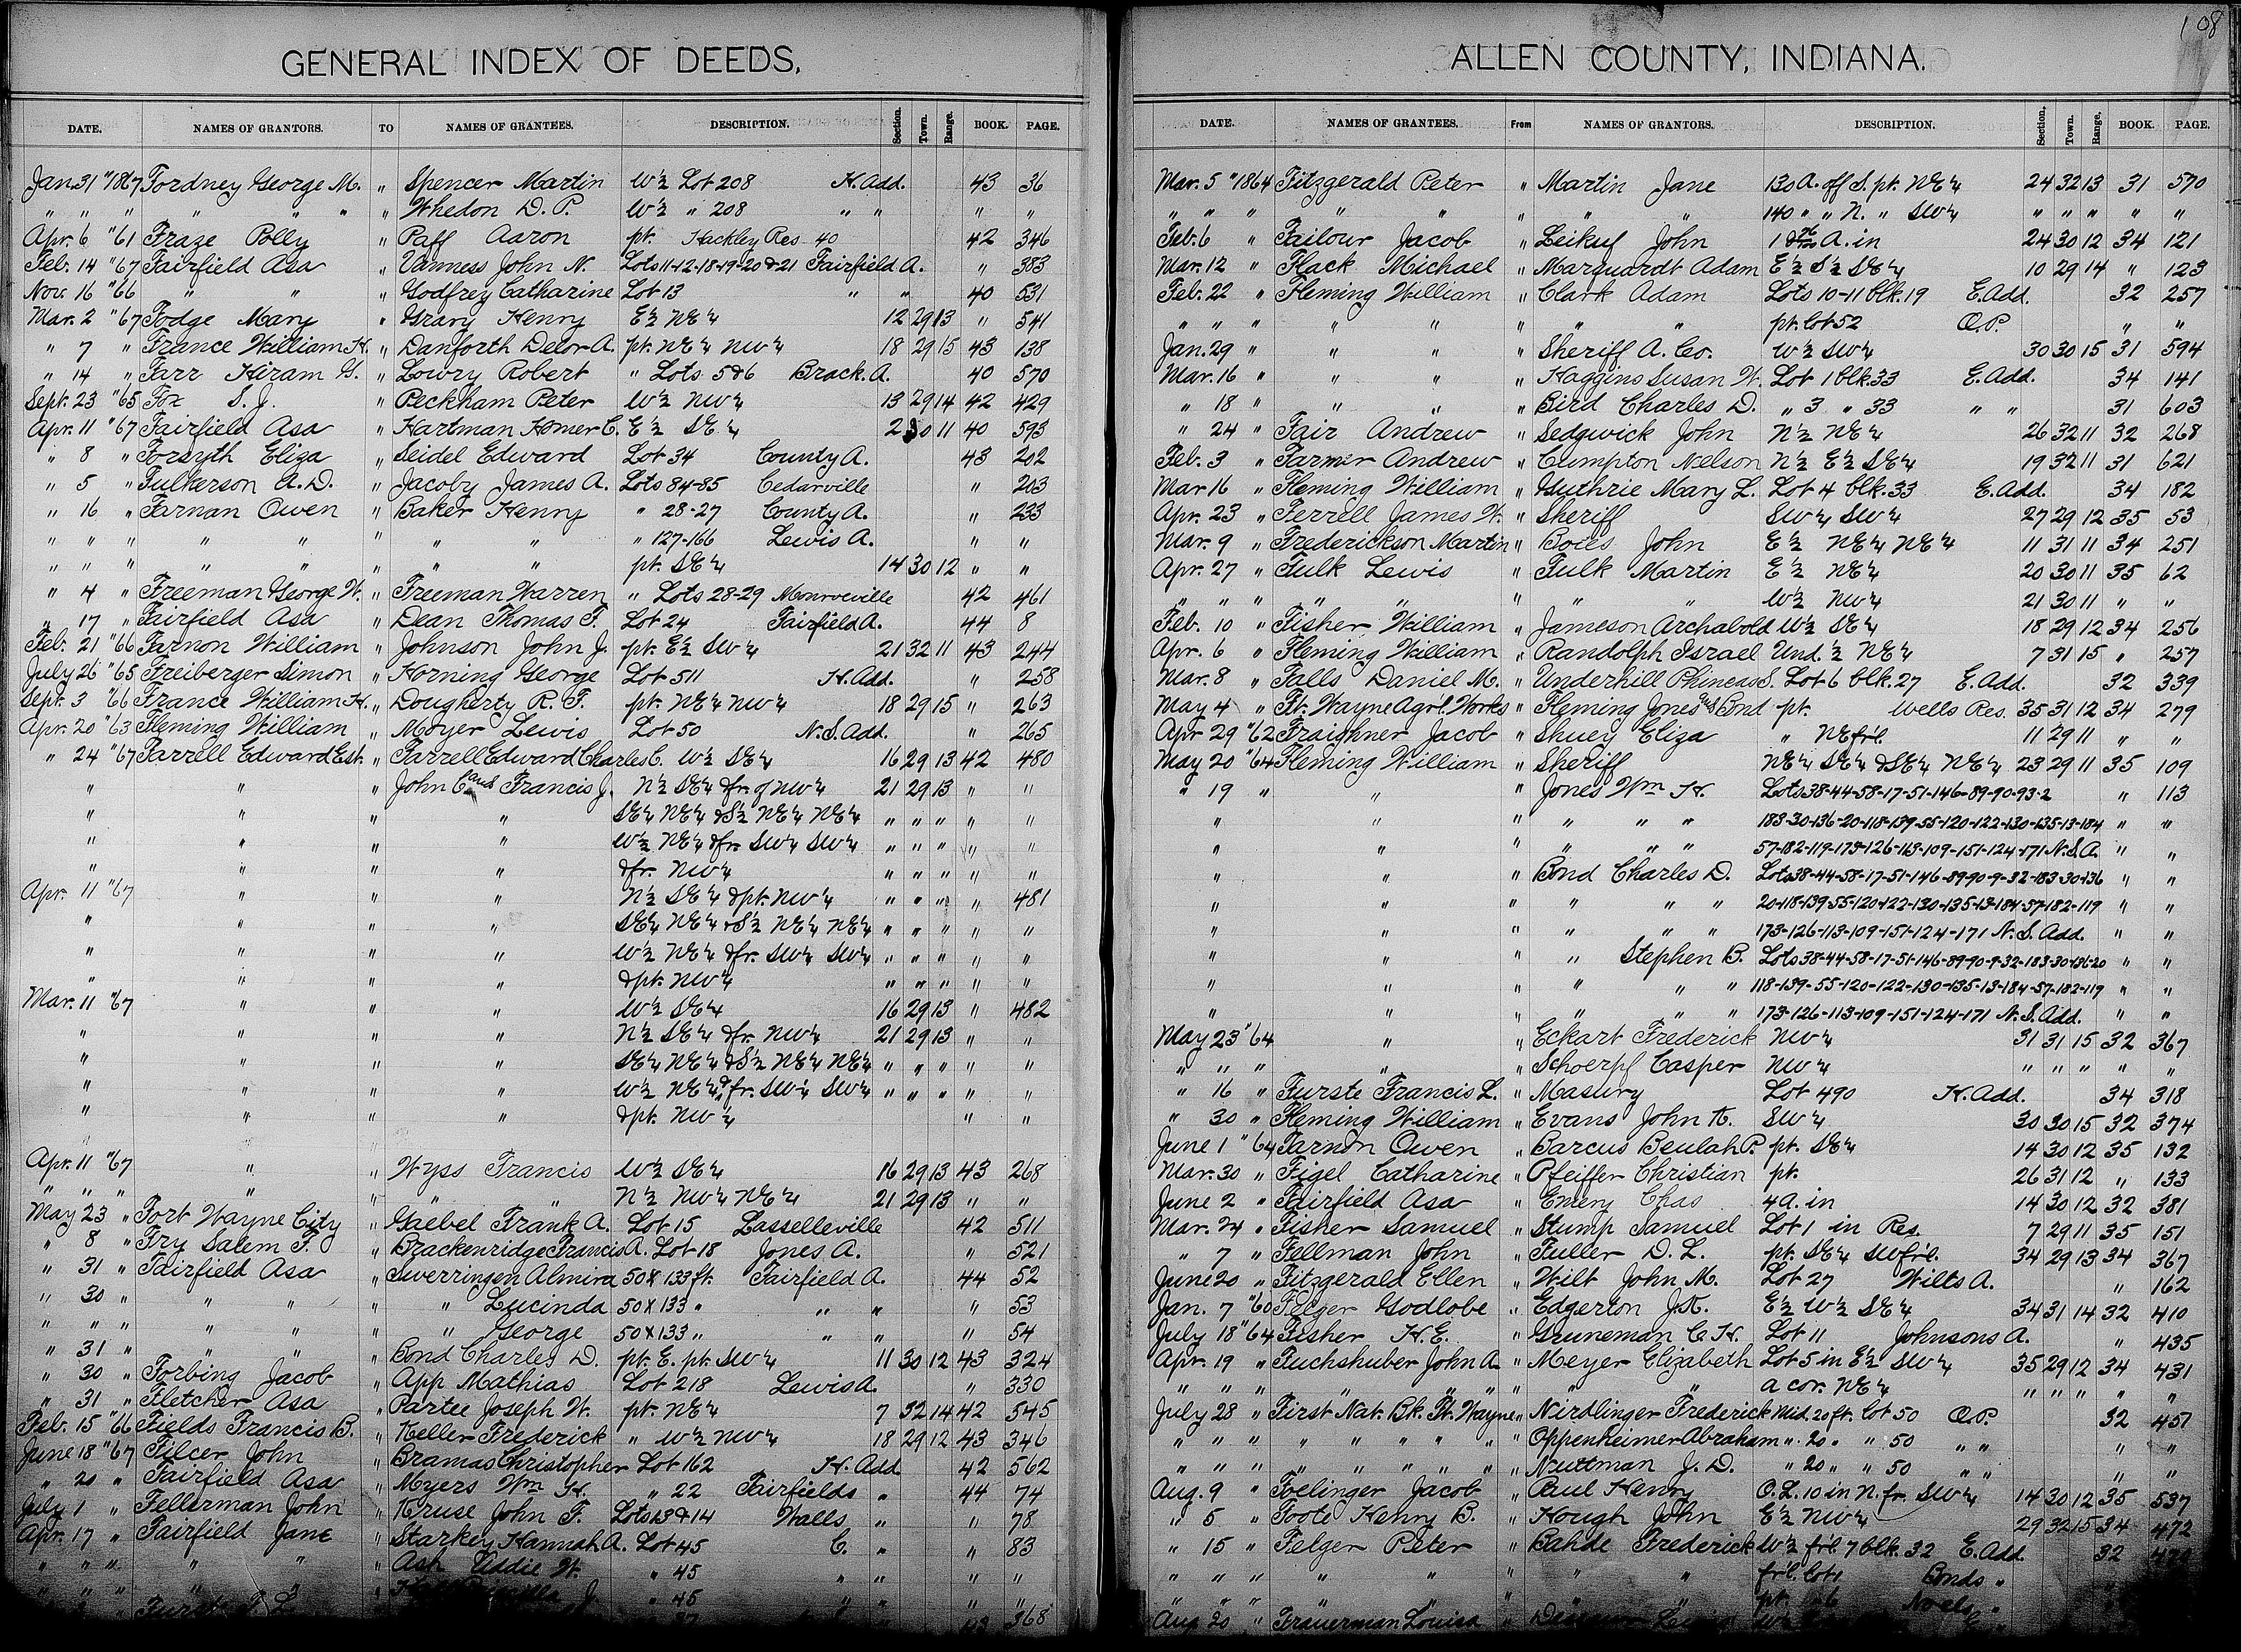 108
GENERAL INDEX OF DEEDS,
DATE. NAMES OF GRANTORS. TO NAMES OF GRANTEES. DESCRIPTION. Section. Town. Range. BOOK. PAGE.
Jan. 31 "1867 Fordney George M. " Spencer Martin W½ Lot 208 H. Add. 43 36
" " " " " " " Whedon D. P. W½ " 208 " " " "
Apr. 6 "61 Fraze Polly " Paff Aaron pt. Hackley Res 40 42 346
Feb. 14 "67 Fairfield Asa " Vanness John N. Lots 11-12-18-19-20 & 21 Fairfield A. " 383
Nov. 16 "66 " " " Godfrey Catharine Lot 13 " " 40 531
Mar. 2 "67 Fodge Mary " Grary Henry E½ NE¼ 12 29 13 " 541
" 7 " France William H. " Danforth Delor A. pt. NE¼ NW¼ 18 29 15 43 138
" 14 " Farr Hiram G. " Lowry Robert " Lots 5&6 Brack. A. 40 570
Sept. 23 "65 Fox S. J. " Peckham Peter W½ NW¼ 13 29 14 42 429
Apr. 11 "67 Fairfield Asa " Hartman Homer C. E½ SE¼ 2 30 11 40 593
" 8 " Forsyth Eliza " Seidel Edward Lot 34 County A. 43 202
" 5 " Fulkerson A. D. " Jacoby James A. Lots 84-85 Cedarville " 203
" 16 " Farnan Owen " Baker Henry " 28-27 County A. " 233
" " " " " " " " " 127-166 Lewis A. " "
" " " " " " " " pt. SE¼ 14 30 12 " "
" 4 " Freeman George W. " Freeman Warren " Lots 28-29 Monroeville 42 461
" 17 " Fairfield Asa " Dean Thomas F. Lot 24 Fairfield A. 44 8
Feb. 21 "66 Farnon William " Johnson John J. pt. E½ SW¼ 21 32 11 43 244
July 26 "65 Freiberger Simon " Horning George Lot 511 H. Add. " 258
Sept. 3 "66 France William H. " Dougherty R. F. pt. NE¼ NW¼ 18 29 15 " 263
Apr. 20 "63 Fleming William " Moyer Lewis Lot 50 N. S. Add. " 265
" 24 "67 Farrell Edward Est. " Farrell Edward Charles C. W½ SE¼ 16 29 13 42 480
" " " John C. and Francis J. N½ SE¼ & fr. of NW¼ 21 29 13 " "
" " " " SE¼ NE¼ & S½ NE¼ NE¼ " " " " "
" " " " W½ NE¼ & fr. SW¼ SW¼ " " " " "
" " " " & fr. NW¼ " " " " "
Apr. 11 "67 " " " N½ SE¼ & pt. NW¼ " " " " 481
" " " " SE¼ NE¼ & S½ NE¼ NE¼ " " " " "
" " " " W½ NE¼ & fr. SW¼ SW¼ " " " " "
" " " " & pt. NW¼ " " " " "
Mar. 11 "67 " " " W½ SE¼ 16 29 13 " 482
" " " " N½ SE¼ & fr. NW¼ 21 29 13 " "
" " " " SE¼ NE¼ & S½ NE¼ NE¼ " " " " "
" " " " W½ NE¼ & fr. SW¼ SW¼ " " " " "
" " " " & pt. NW¼ " "
Apr. 11 "67 " " Wyss Francis W½ SE¼ 16 29 13 43 268
" " " " " " " N½ NW¼ NE¼ 21 29 13 " "
May 23 " Fort Wayne City " Gaebel Frank A. Lot 15 Lasselleville 42 511
" 8 " Fry Salem F. " Brackenridge Francis A. Lot 18 Jones A. " 521
" 31 " Fairfield Asa " Swerringen Almira 50 X 133 ft. Fairfield A. 44 52
" 30 " " " " " Lucinda 50 X 133 " " " " 53
" " " " " " " George 50 X 133 " " " " 54
" 31 " " " " Bond Charles D. pt. E. pt. SW¼ 11 30 12 43 324
" 30 " Forbing Jacob " App Mathias Lot 218 Lewis A. " 330
" 31 " Fletcher Asa " Partee Joseph W. pt. NE¼ 7 32 14 42 545
Feb. 15 "66 Fields Francis B. " Keller Frederick " W½ NW¼ 18 29 12 43 346
June 18 "67 Filcer John " Bramas Christopher Lot 162 H. Add. 42 562
" 20 " Fairfield Asa " Myers Wm H. " 22 Fairfields " 44 74
July 1 " Fellerman John " Kruse John F. Lots 13 & 14 Walls " " 78
Apr. 17 " Fairfield Jane " Starkey Hannah A. Lot 45 C. " " 83
" " " " " " Ash Addie W. " 45 " " " "
" 45 " " " "
368
ALLEN COUNTY, INDIANA.
DATE. NAMES OF GRANTEES. From NAMES OF GRANTORS. DESCRIPTION. Section. Town. Range. BOOK. PAGE.
Mar. 5 "1864 Fitzgerald Peter " Martin Jane 130 A. off S. pt. NE¼ 24 32 13 31 570
" " " " " " " " 140 " " N. " SW¼ " " " " "
Feb. 6 " Failour Jacob " Leikuf John A. in 24 30 12 34 121
Mar. 12 " Flack Michael " Marquardt Adam E½ S½ SE¼ 10 29 14 " 123
Feb. 22 " Fleming William " Clark Adam Lots 10-11 blk. 19 E. Add. 32 257
" " " " " " " " pt. Lot 52 O. P. " "
Jan. 29 " " " " Sheriff A. Co. W½ SW¼ 30 30 15 31 594
Mar. 16 " " " " Haggins Susan W. Lot 1 blk. 33 E. Add. 34 141
" 18 " " " " Bird Charles D. " 3 " 33 " " 31 603
" 24 " Fair Andrew " Sedgwick John N½ NE¼ 26 32 11 32 268
Feb. 3 " Farmer Andrew " Cumpton Nelson N½ E½ SE¼ 19 32 11 31 621
Mar 16 " Fleming William " Guthrie Mary L. Lot 4 blk. 33 E. Add. 34 182
Apr. 23 " Ferrell James W. " Sheriff SW¼ SW¼ 27 29 12 35 53
Mar. 9 " Frederickson Martin " Boils John E½ NE¼ NE¼ 11 31 11 34 251
Apr. 27 " Fulk Lewis " Fulk Martin E½ NE¼ 20 30 11 35 62
" " " " " " " " W½ NW¼ 21 30 11 " "
Feb. 10 " Fisher William " Jameson Archabold W½ SE¼ 18 29 12 34 256
Apr. 6 " Fleming William " Randolph Israel Und. ½ NE¼ 7 31 15 " 257
Mar. 8 " Falls Daniel M. " Underhill Phineas S. Lot 6 blk. 27 E. Add. 32 339
May 4 " Ft. Wayne Agr'l. Works " Fleming Jones and Bond pt. Wells Res. 35 31 12 34 279
Apr 29 "62 Fraichner Jacob " Shuey Eliza " NE frl. 11 29 11 " "
May 20 "64 Fleming William " Sheriff NE¼ SE¼ & SE¼ NE¼ 23 29 11 35 109
" 19 " " " Jones Wm H. Lots 38-44-58-17-51-146-89-90-93-2 " 113
" " " " " " 183-30-136-20-118-139-55-120-122-130-135-13-184 " "
" " " " " " 57-182-119-173-126-113-109-151-124-171 N. S. A. " "
" " " Bond Charles D. Lots 38-44-58-17-51-146-89-90-9-32-183-30-136 " "
" " " " " " 20-118-139-55-120-122-130-135-13-184-57-182-119 " "
" " " " " " 173-126-113-109-151-124-171 N. S. Add. " "
" " " " Stephen B. Lots 38-44-58-17-51-146-89-90-9-32-183-30-136-20 " "
" " " " " " 118-139-55-120-122-130-135-13-184-57-182-119 " "
" " " " " " 173-126-113-109-151-124-171 N. S. Add. " "
May 23 '64 " " Eckart Frederick NW¼ 31 31 15 32 367
" " " " " Schoerpf Casper NW¼ " " " " "
" 16 " Furste Francis L. " Masury Lot 490 H. Add. 34 318
" 30 " Fleming William " Evans John K. SW¼ 30 30 15 32 374
June 1 "64 Farnon Owen " Barcus Beulah P. pt. SE¼ 14 30 12 35 132
Mar. 30 " Figel Catharine " Pfeiffer Christian pt. 26 31 12 " 133
June 2 " Fairfield Asa " Emery Chas 4 a. in 14 30 12 32 381
Mar. 24 " Fisher Samuel " Stump Samuel Lot 1 in Res 7 29 11 35 151
" 7 " Fellman John " Fuller D. L. pt. SE¼ SW frl. 34 29 13 34 367
June 20 " Fitzgerald Ellen " Wilt John M. Lot 27 Wilts A. " 162
Jan. 7 "60 Felger Godlobe " Edgerton J. K. E½ W½ SE¼ 34 31 14 32 410
July 18 "64 Fisher H. E. " Gruneman C. H. Lot 11 Johnsons A. " 435
Apr. 19 " Fuchshuber John A. " Meyer Elizabeth Lot 5 in E½ SW¼ 35 29 12 34 431
" " " " " " " " " a cor. NE¼ " " " " "
July 28 " First Nat. Bk. Ft. Wayne " Nirdlinger Frederick Mid. 20 ft. lot 50 O. P. 32 451
" " " " " " " " " Oppenheimer Abraham " 20 " " 50 " " " "
" " " " " " " " " Nuttman J. D. " 20 " " 50 " " " "
Aug. 9 " Foelinger Jacob " Paul Henry O. L. 10 in N. fr. SW¼ 14 30 12 35 537
" 5 " Foote Henry B. " Hough John E½ NW¼ 29 32 15 34 472
" 15 " Felger Peter " Bahde Frederick W½ frl. 7 blk. 32 E. Add. 32
" " " " " " " " frl. Lot 1 Bonds "
pt.
Aug 20 " Frauerman Louisa "